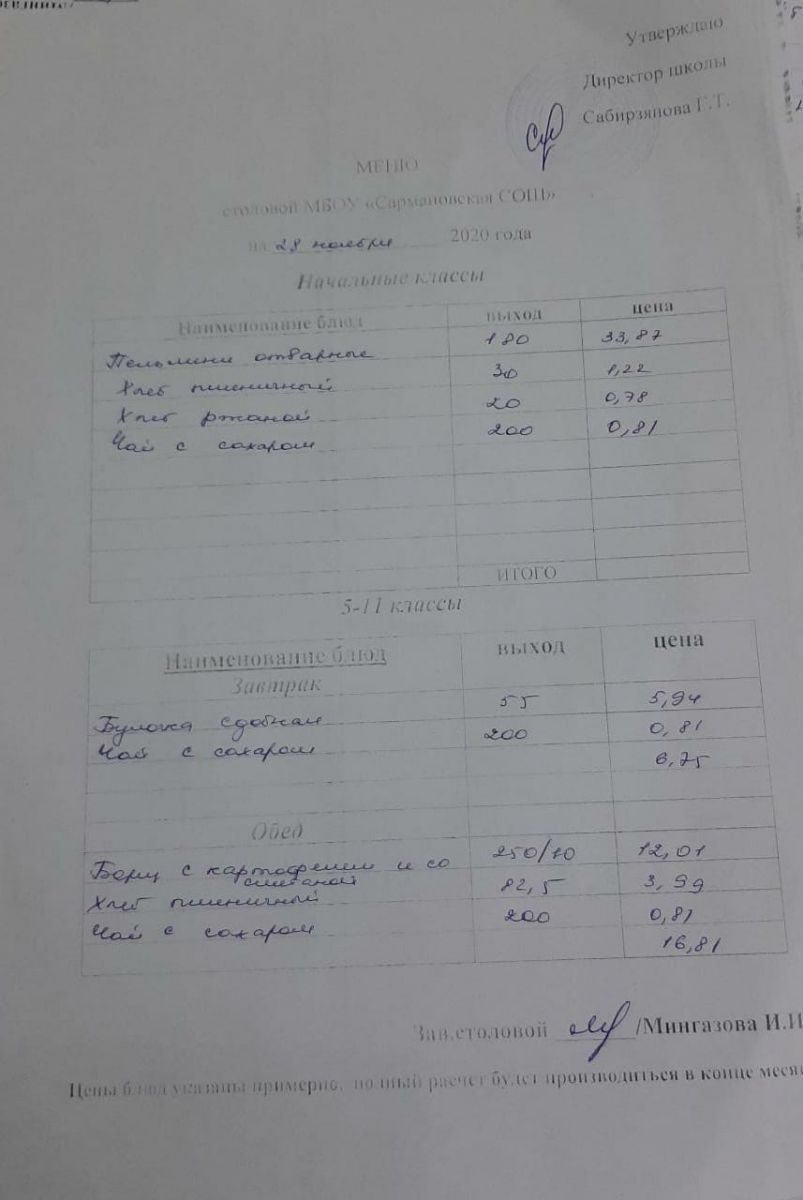 Утверждаю
Директор школы
Сабирзянова Г.Т.
МЕНЮ
столовой МБОУ «Сармановская СОШ»
на 28 ноября 2020 года
Начальные классы
Наименование блюд выход цена
Пельмени отварные 180 33,87
Хлеб пшеничный 30 1,22
Хлеб ржаной 20 0,78
Чай с сахаром 200 0,81
ИТОГО
5-11 классы
Наименование блюд выход цена
Завтрак
Булочка сдобная 55 5,94
Чай с сахаром 200 0,81
6,75
Обед
Борщ с картофелем и со сметаной 250/10 12,01
Хлеб пшеничный 82,5 3,99
Чай с сахаром 200 0,81
16,81
Зав.столовой /Мингазова И.И
Цены блюд указаны примерно, полный расчет будет производиться в конце меся